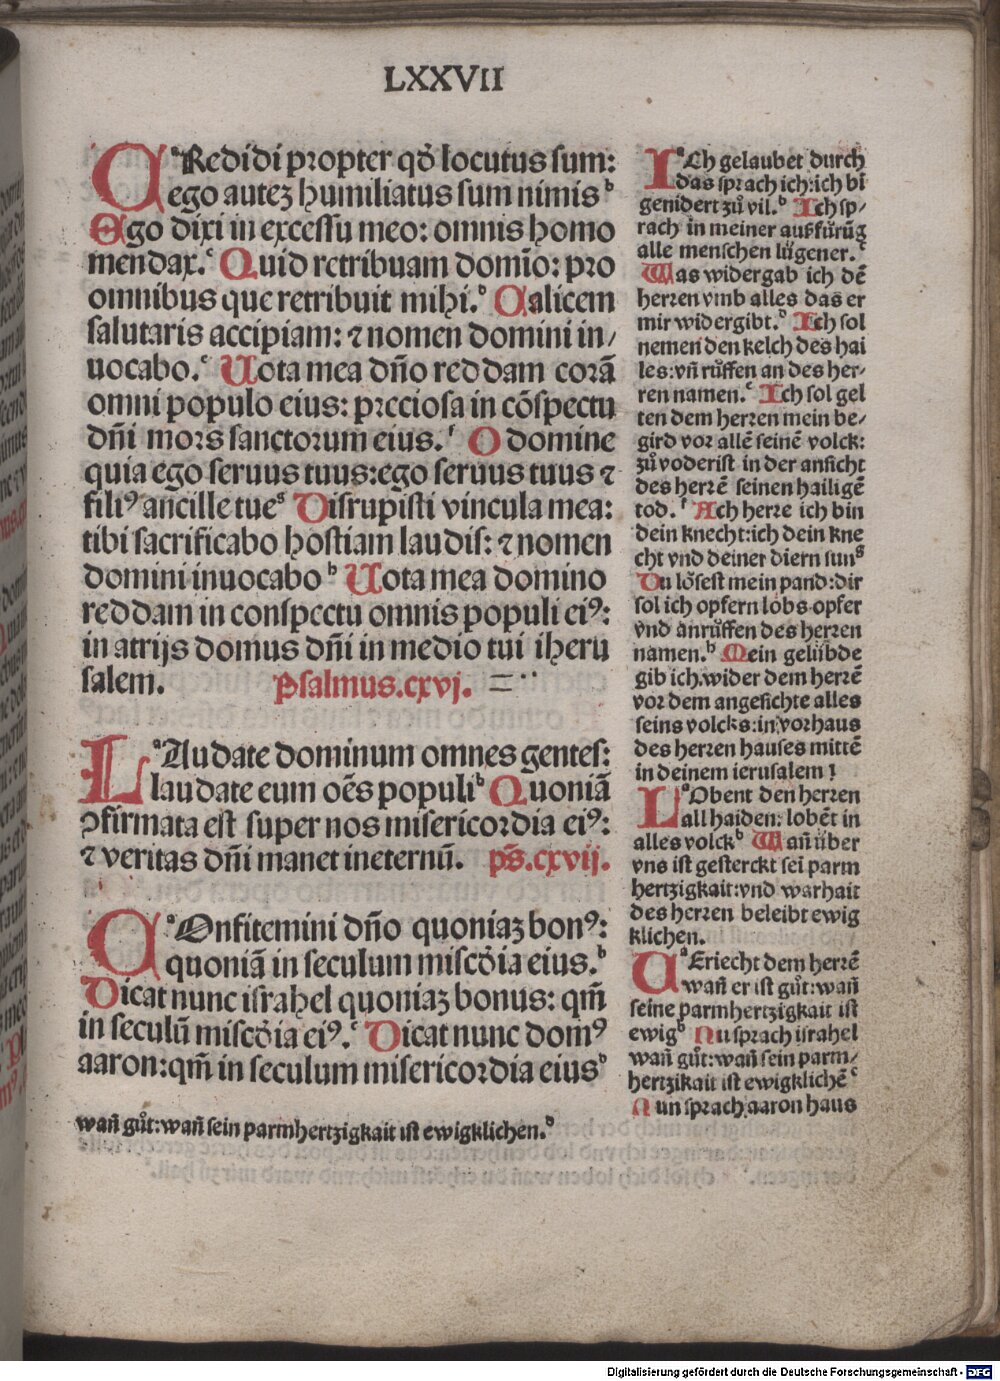 LXXVII
CᵃRedidi propter qð locutus sum:
ego autez humiliatus sum nimisᵇ
Ego dixi in excessu meo: omnis homo
mendax.ᶜ Quid retribuam domīo: pro
omnibus que retribuit mihi.ᵈ Calicem
salutaris accipiam: ⁊ nomen domini in/
uocabo.ᵉ Uota mea dño reddam corā
omni populo eius: preciosa in cōspectu
dñi mors sanctorum eius.ᶠ O domine
quia ego seruus tuus:ego seruus tuus ⁊
filiꝰ ancille tueᵍ Disrupisti vincula mea:
tibi sacrificabo hostiam laudis: ⁊ nomen
domini inuocaboʰ Uota mea domino
reddam in conspectu omnis populi eiꝰ:
in atrijs domus dñi in medio tui iheru
salem. Psalmus.cxvj.
LᵃAudate dominum omnes gentes:
laudate eum oēs populiᵇ Quoniā
ꝯfirmata est super nos misericordia eiꝰ:
⁊ veritas dñi manet ineternū. ps̄.cxvij.
CᵃOnfitemini dño quoniaz bonꝰ:
quoniā in seculum miscd̄ia eius.ᵇ
Dicat nunc israhel quoniaz bonus: qm̄
in seculū miscd̄ia eiꝰ.ᶜ Dicat nunc domꝰ
aaron:qm̄ in seculum misericordia eiusᵈ
IᵃCh gelaubet durch
das sprach ich:ich bī
genidert zů vil.ᵇ Ich sp/
rach in meiner außfürūg
alle menschen lügener.ᶜ
Was widergab ich dē
herren vmb alles das er
mir widergibt.ᵈ Ich sol
nemen den kelch des hai
les:vñ růffen an des her/
ren namen.ᵉ Ich sol gel
ten dem herren mein be/
gird vor allē seinē volck:
zů voderist in der ansicht
des herrē seinen hailigē
tod.ᶠ Ach herre ich bin
dein knecht:ich dein kne
cht vnd deiner diern sunᵍ
Du lösest mein pand:dir
sol ich opfern lobs opfer
vnd anrůffen des herren
namen.ʰ Mein gelübde
gib ich.wider dem herrē
vor dem angesichte alles
seins volcks:in vorhaus
des herren hauses mittē
in deinem ierusalem ꝛ
LᵃObent den herren
all haiden: lobēt in
alles volckᵇ Wañ über
vns ist gesterckt seī parm
hertzigkait:vnd warhait
des herren beleibt ewig
klichen.
UᵃEriecht dem herrē
wañ er ist gůt:wañ
seine parmhertzigkait ist
ewigᵇ Nu sprach israhel
wañ gůt:wañ sein parm/
hertzikait ist ewigklichēᶜ
Nun sprach aaron haus
wañ gůt:wañ sein parmhertzigkait ist ewigklichen.ᵈ
Digitalisierung gefördert durch die Deutsche Forschungsgemeinschaft - DFG